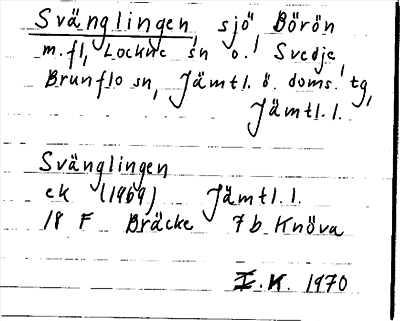 Svänglingen, sjö, Börön
m.fl., Lockne sn o. Svedje,
Brunflo sn, Jämtl. ö. doms. tg,
Jämtl. l.
Svänglingen
ek (1969) Jämtl. l.
18 F Bräcke 7b Knöva
I.K. 1970